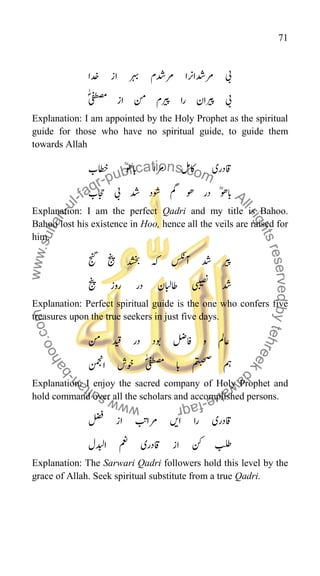 71
بی مرشدانرا مرشدم رہبر از خدا
بی پیران را پیرم من از مصطفیٰؐ
Explanation: I am appointed by the Holy Prophet as the spiritual
guide for those who have no spiritual guide, to guide them
towards Allah
قادری کامل مرا باھوؒ خطاب
باھوؒ در ھو گم شود شد بی حجاب
Explanation: I am the perfect Qadri and my title is Bahoo.
Bahoo lost his existence in Hoo, hence all the veils are raised for
him.
پیر شد آنکس کہ بخشد پنج گنج
شد نصیبی طالبان در روز پنج
Explanation: Perfect spiritual guide is the one who confers five
treasures upon the true seekers in just five days.
عالم و فاضل بود در قید من
ہم صحبتم با مصطفیٰؐ خوش انجمن
Explanation: I enjoy the sacred company of Holy Prophet and
hold command over all the scholars and accomplished persons.
قادری را این مراتب از فضل
طلب کن از قادری نعم البدل
Explanation: The Sarwari Qadri followers hold this level by the
grace of Allah. Seek spiritual substitute from a true Qadri.